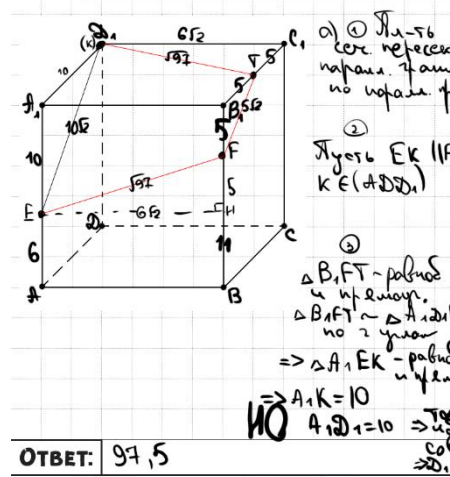 D₁
(K)
6√2
C₁
10
√97
T
5
5
A₁
B₁
5√2
5
10√2
10
F
√97
5
E
6√2
H
D₁
C
6
11
A
B
а) ① Пл-ть
сеч. пересек
паралл.
по паралл.
②
Пусть EK ||F
K ∈ (ADD₁)
③
△B₁FT - равноб
и прямоуг.
△B₁FT ~ △A₁D₁
по 2 углам
=> △A₁EK - равноб
и прям
=> A₁K = 10
НО A₁D₁ = 10 =>
=> D₁
ОТВЕТ: 97,5